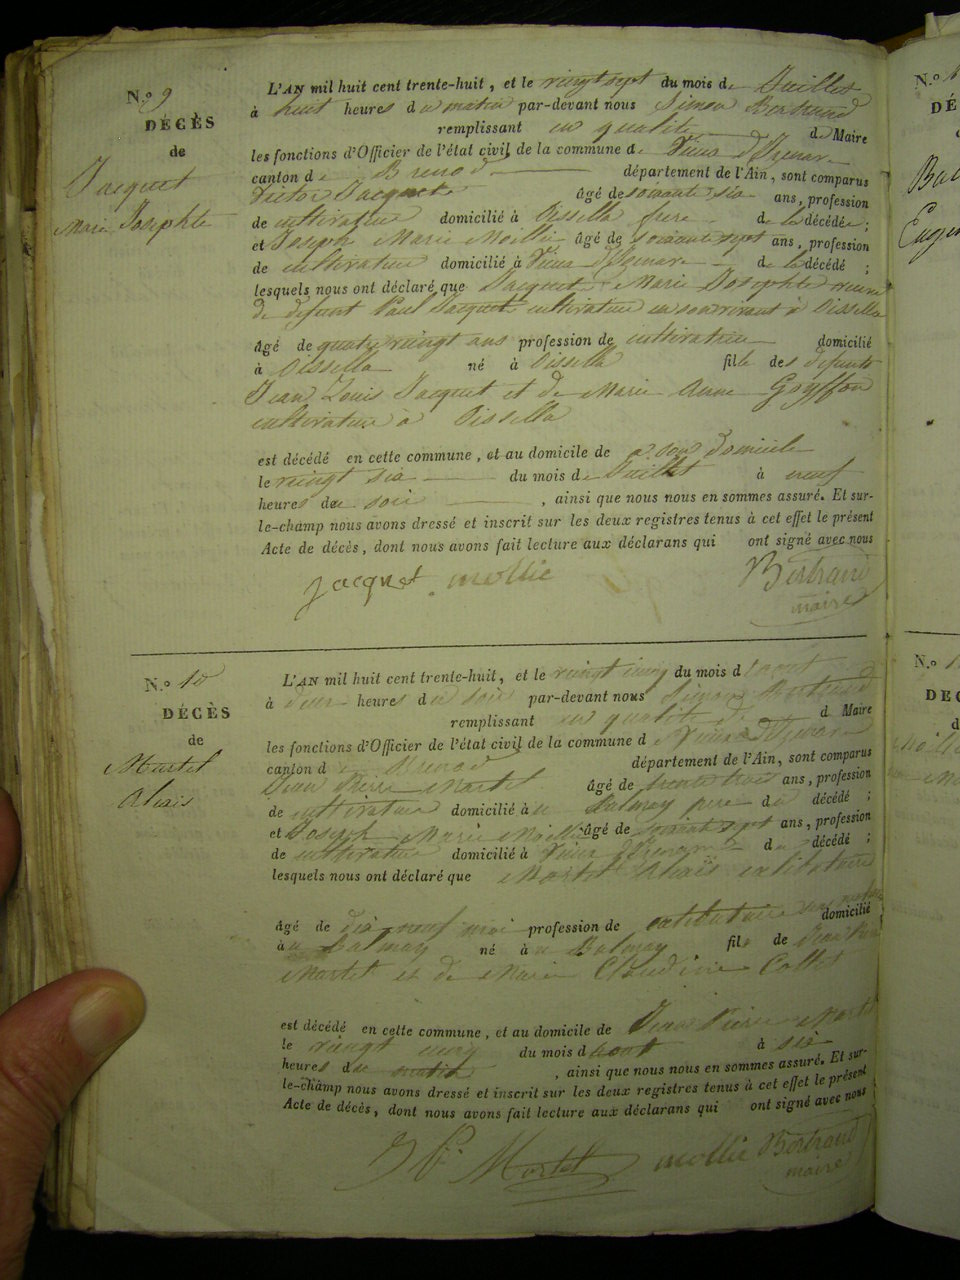 N.o 9
DÉCÈS
de
Jacquet
Marie Josephte
L'AN mil huit cent trente-huit, et le vingt sept du mois de Juillet
à huit heures du matin par-devant nous Simon Bertrand
remplissant en qualité de Maire
les fonctions d'Officier de l'état civil de la commune de Vieux d'Izenave
canton de Brenod département de l'Ain, sont comparus
Victor Jacquet âgé de soixante six ans, profession
de cultivateur domicilié à Oissella frère de la décédée ;
et Joseph Marie Mollie âgé de soixante sept ans, profession
de cultivateur domicilié à Vieux d'Izenave de la décédé ;
lesquels nous ont déclaré que Jacquet Marie Josephte veuve
de defunt Paul Jacquet cultivateur en son vivant à Oissella
âgé de quatre vingt ans profession de cultivatrice domicilié
à Oissella né à Oissella fille des defunts
Jean Louis Jacquet et de Marie Anne Goyffon
cultivateurs à Oissella
est décédé en cette commune, et au domicile de a son domicile
le vingt six du mois de Juillet à neuf
heures du soir , ainsi que nous nous en sommes assuré. Et sur-
le-champ nous avons dressé et inscrit sur les deux registres tenus à cet effet le présent
Acte de décès, dont nous avons fait lecture aux déclarans qui ont signé avec nous
Jacquet mollie Bertrand
maire
N.o 10
DÉCÈS
de
Martel
Alexis
L'AN mil huit cent trente-huit, et le vingt cinq du mois d'aout
à deux heures du soir par-devant nous Simon Bertrand
remplissant en qualité de d Maire
les fonctions d'Officier de l'état civil de la commune de Vieux d'Izenave
canton de Brenod département de l'Ain, sont comparus
Jean Pierre Martel âgé de trente trois ans, profession
de cultivateur domicilié à au Balmay père du décédé ;
et Joseph Marie Mollie âgé de soixante sept ans, profession
de cultivateur domicilié à Vieux d'Izenave du décédé ;
lesquels nous ont déclaré que Martel Alexis célibataire
âgé de dix neuf mois profession de domicilié
à au Balmay né à au Balmay fils de Jean Pierre
Martel et de Marie Claudine Collet
est décédé en cette commune, et au domicile de Jean Pierre Martel
le vingt cinq du mois d'aout à six
heures du matin , ainsi que nous nous en sommes assuré. Et sur-
le-champ nous avons dressé et inscrit sur les deux registres tenus à cet effet le présent
Acte de décès, dont nous avons fait lecture aux déclarans qui ont signé avec nous
J P. Martel mollie Bertrand
maire